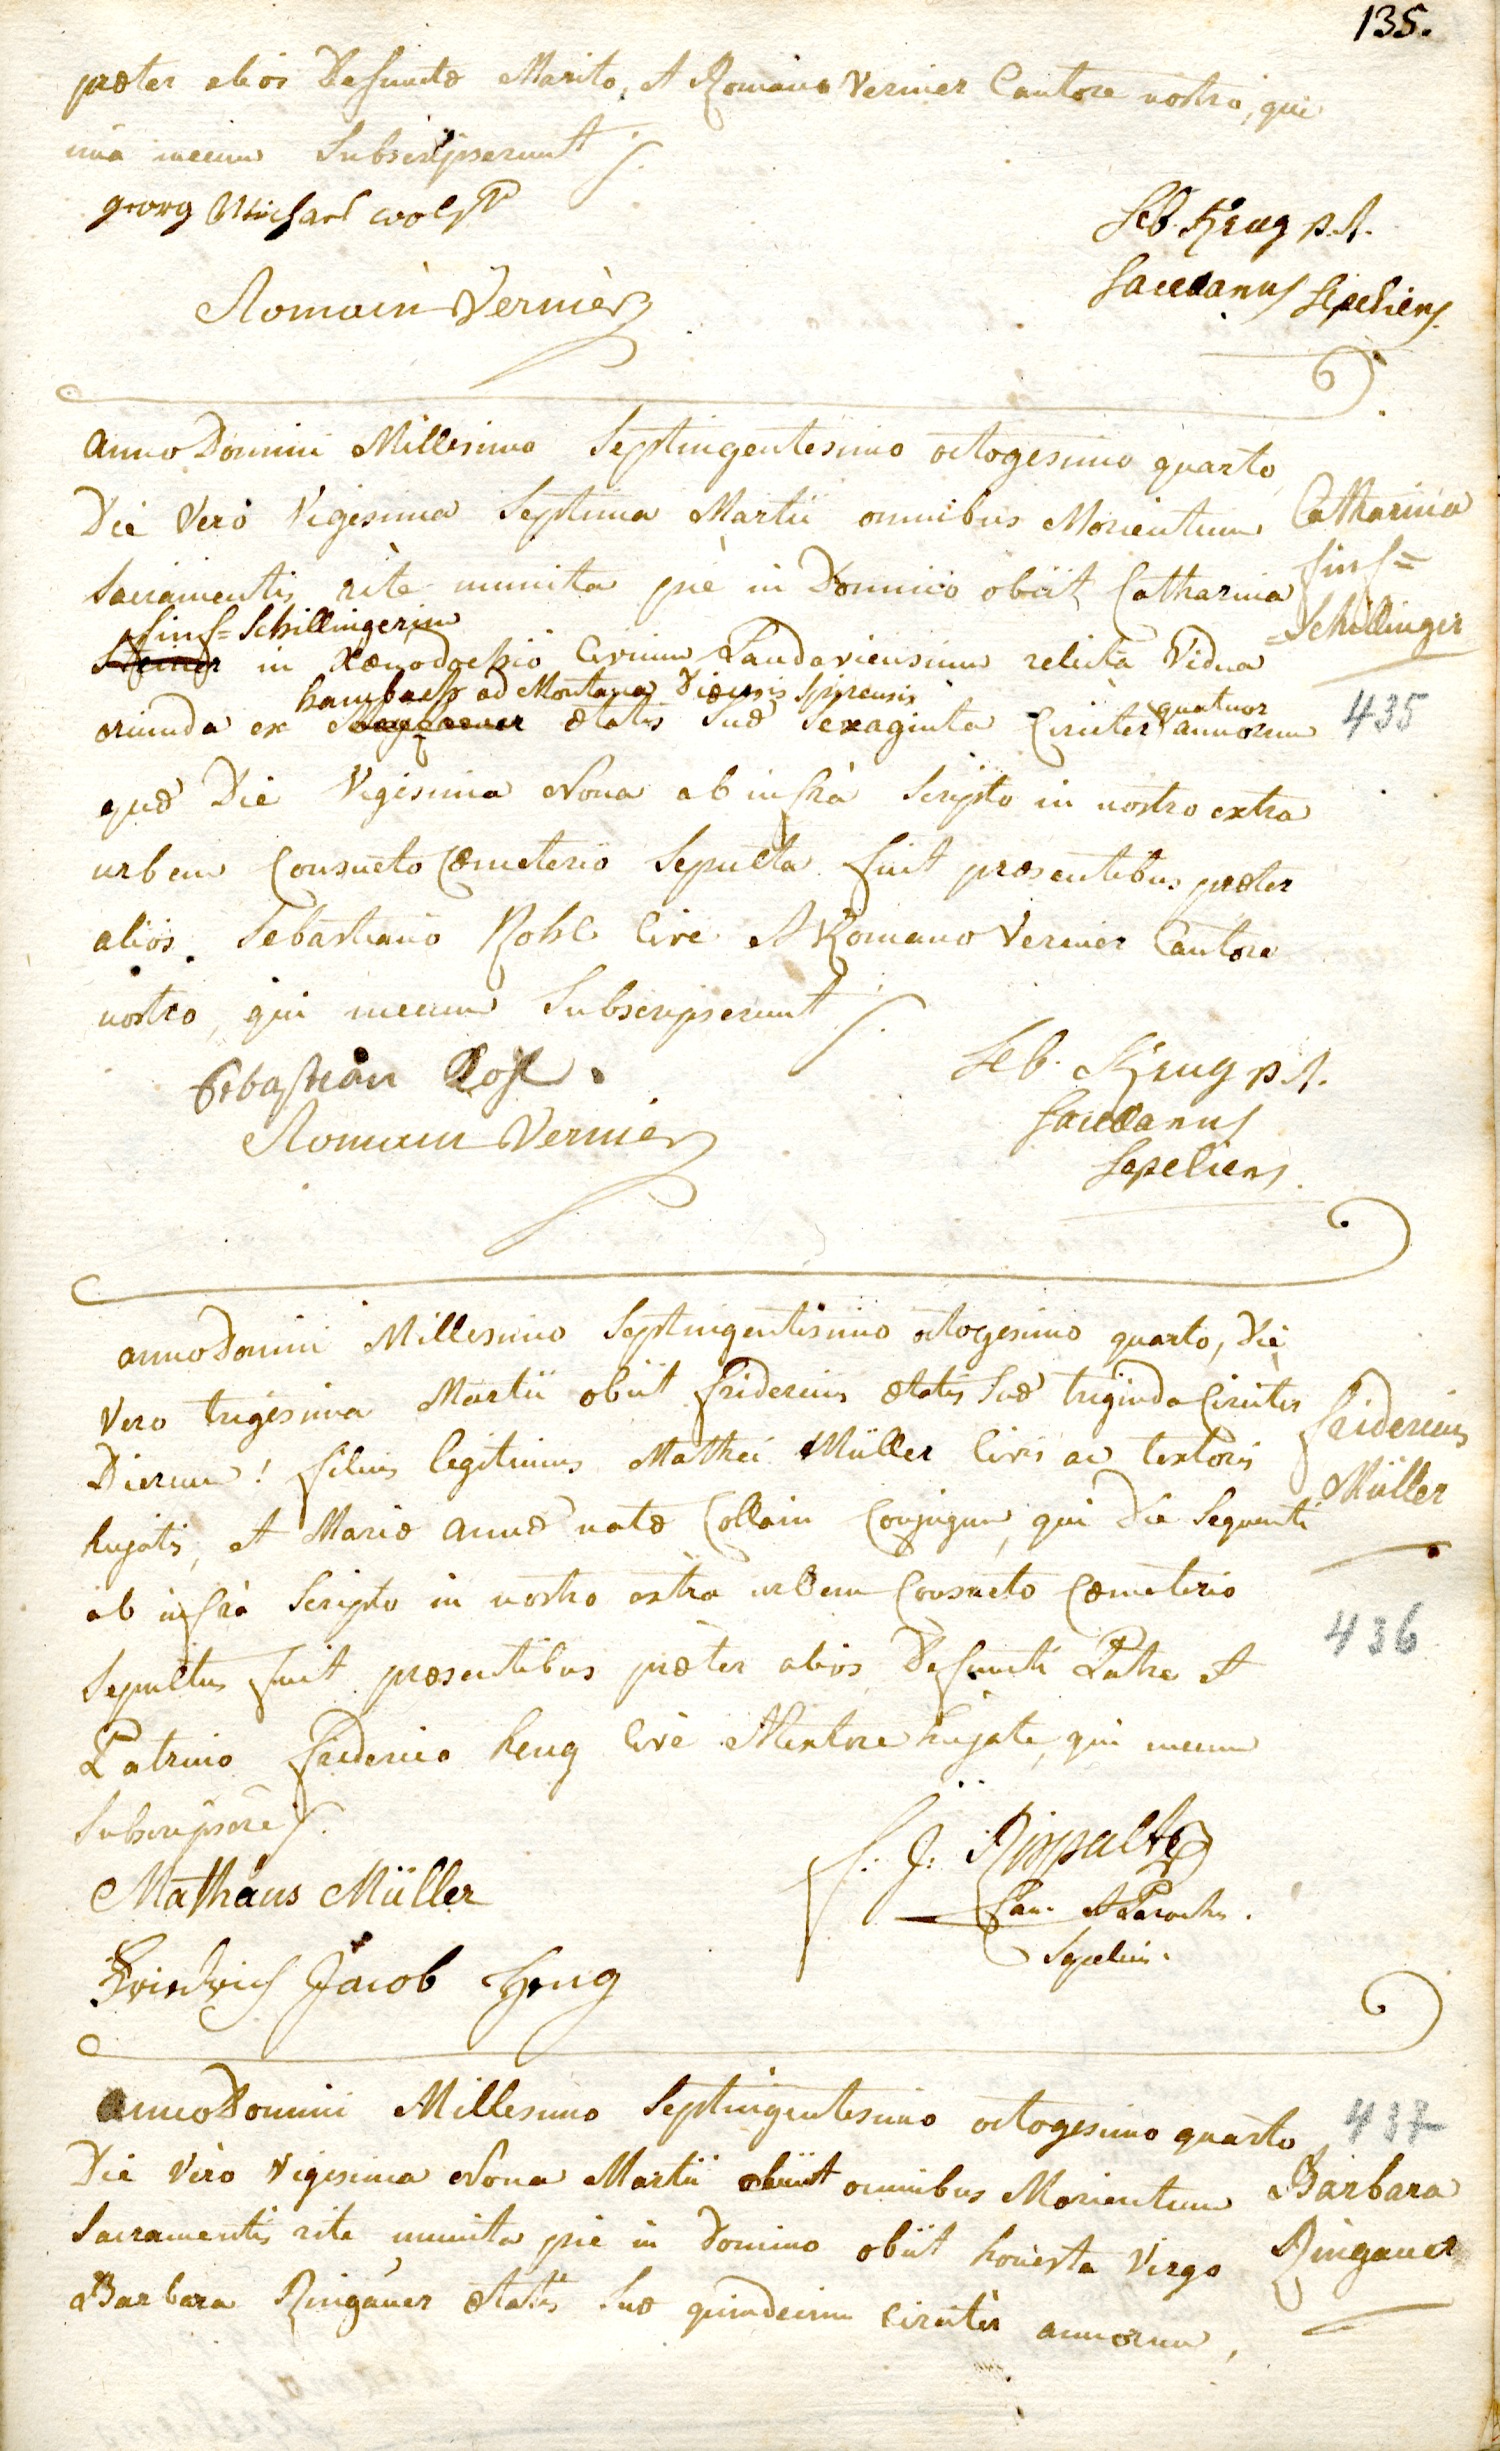 135.
præter alios Defunctæ Marito, et Romano Vernier Cantore nostro, qui
una mecum Subscripserunt
georg Michael wolff
Seb. Krug p.t.
Romain Vernier
Sacellanus sepeliens.
anno Domini Millesimo Septingentesimo octogesimo quarto,
Die Verò Vigesima Septima Martii omnibus Morientium
Catharina
Sacramentis rìte munita piè in Domino obiit Catharina
finf=
finf=Schillingerin
=Schillinger
in Xænodochio Civium Landaviensium relicta Vidua
hambach ad Montana Diœcesis Spirensis
quatuor
oriunda ex ætatis suæ sexaginta Circiter annorum
435
quæ Die Vigesima Nona ab infrà Scripto in nostro extra
urbem Consueto Cœmeterio Sepulta fuit præsentibus præter
alios Sebastiano Rohl Cive et Romano Vernier Cantore
nostro, qui mecum Subscripserunt
Sebastian Rohl.
Seb. Krug p.t.
Romain Vernier
Sacellanus
Sepeliens.
anno Domini Millesimo Septingentesimo octogesimo quarto, Die
Vero trigesima Martii obiit fridericus ætatis suæ triginda Circiter
fridericus
Dierum! filius legitimus Mathei Müller Civis ac textoris
Müller
hujatis, et Mariæ annæ natæ Collain Conjugum, qui Die Sequenti
ab infrà Scripto in nostro extra urbem Consueto Cœmeterio
436
Sepultus fuit præsentibus præter alios Defuncti Patre et
Patrino friderico heng Cive hujate, qui mecum
Subscripsêre
Mathäus Müller
Can. et Parochus.
Sepeliens.
Friedrich Jacob Heng
anno Domini Millesimo Septingentesimo octogesimo quarto
437
Die Vèro Vigesima Nona Martii obiit omnibus Morientium
Barbara
Sacramentis rite munita pie in Domino obiit honesta Virgo
Ringauer
Barbara Ringauer ætatis suæ quindecim circiter annorum,